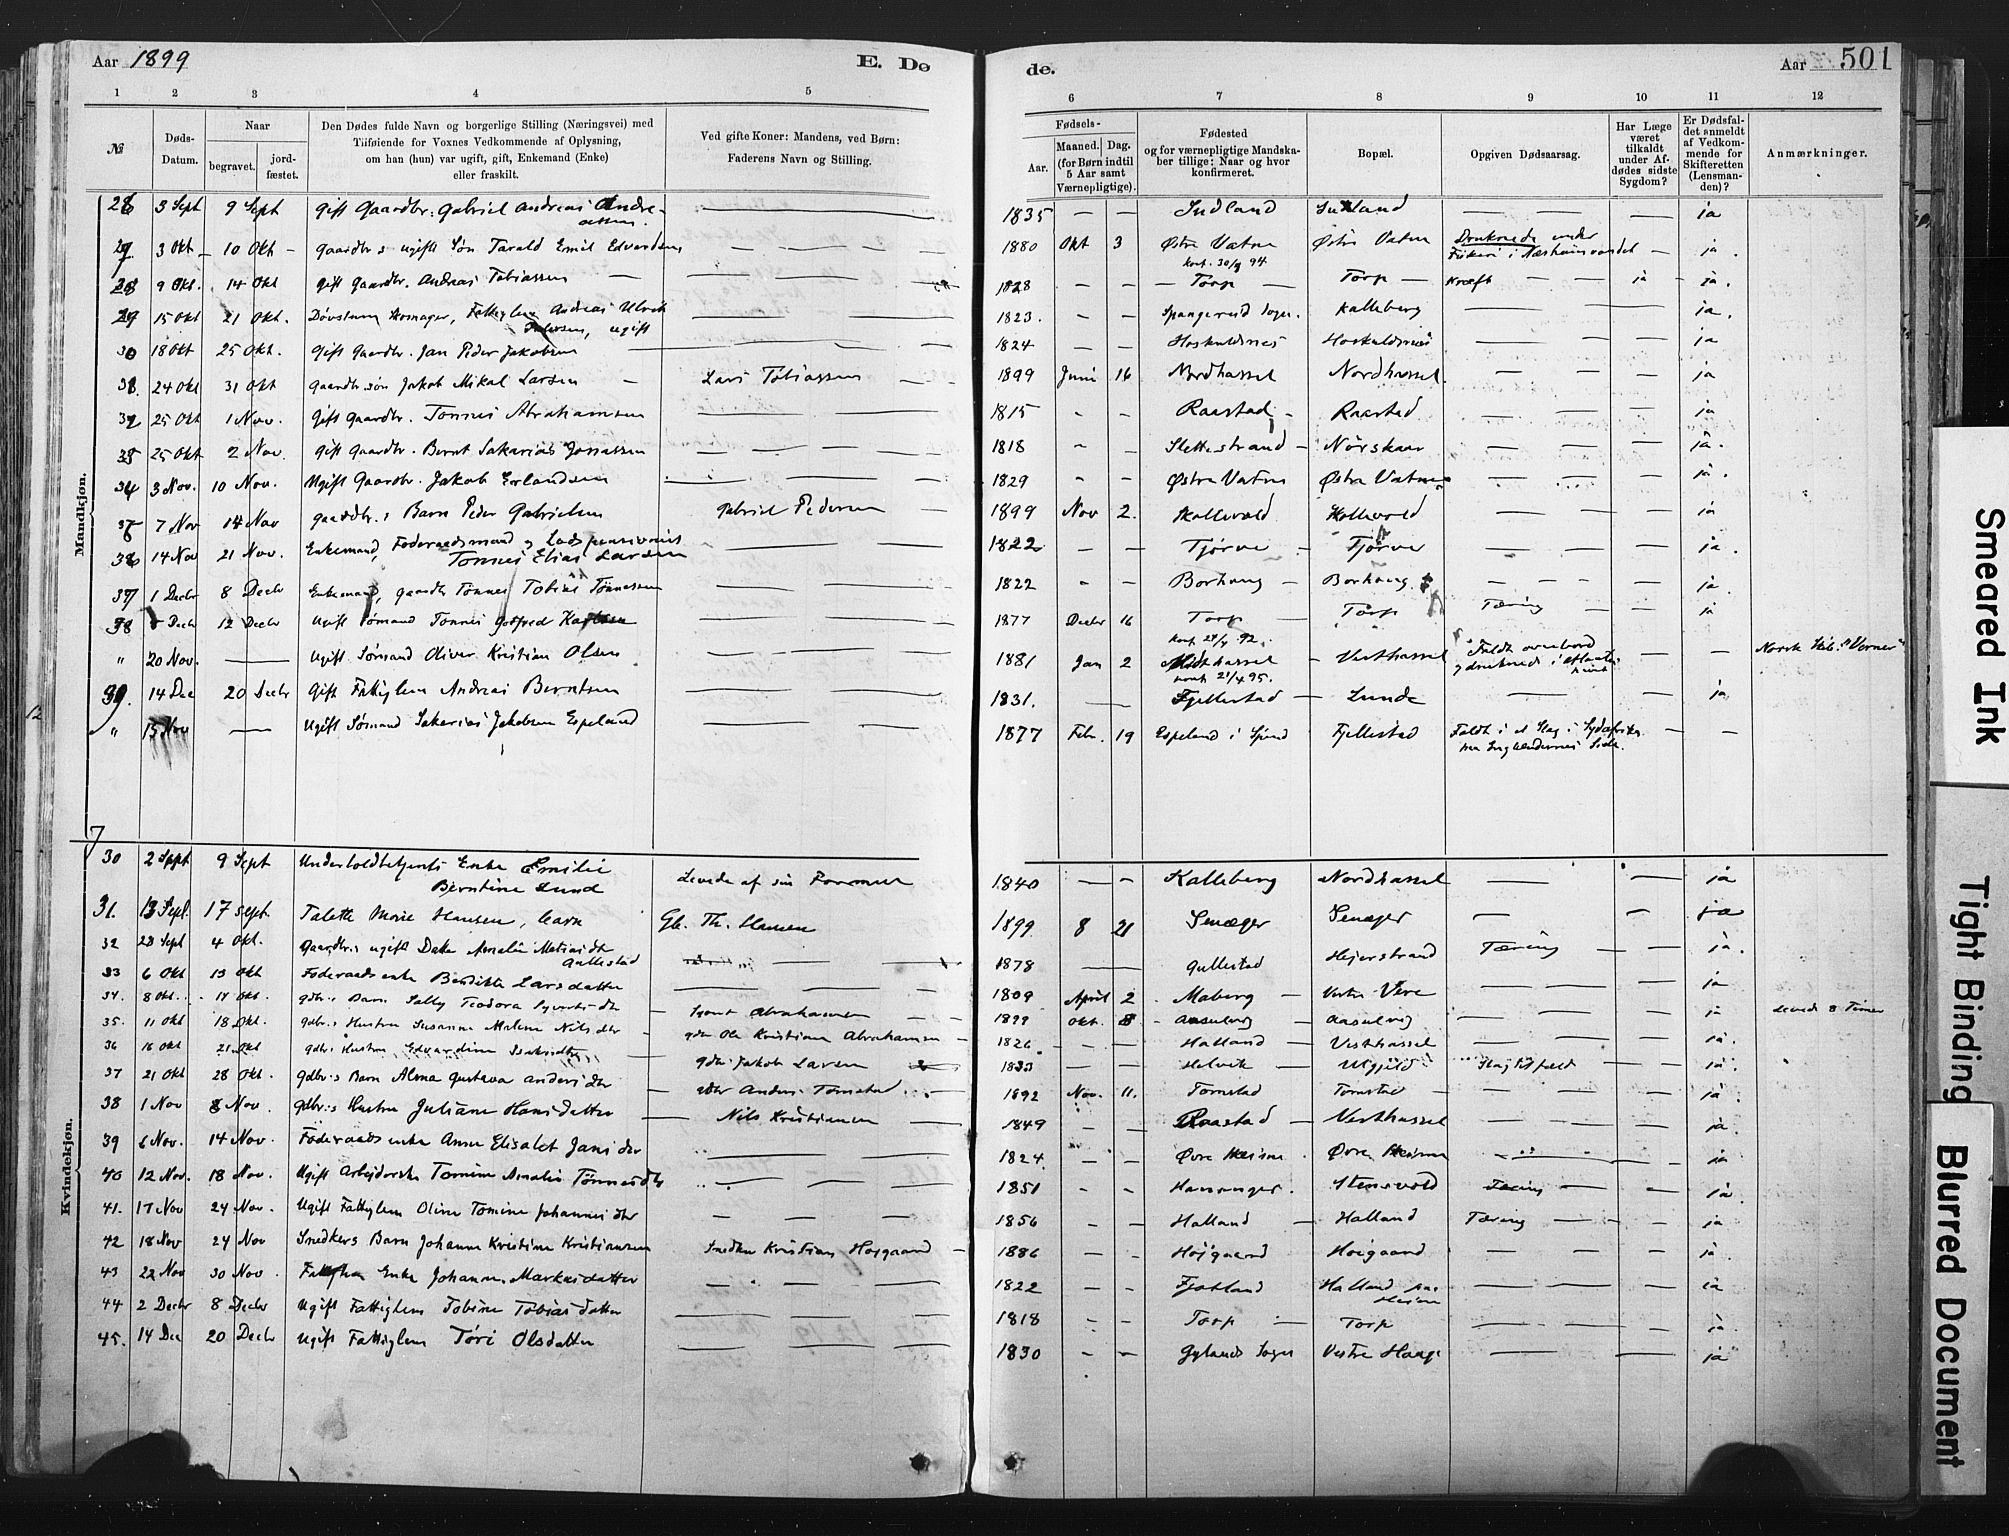 Aar 1899
E. Dø
de.
Aar 501
1 2 3 4 5 6 7 8 9 10 11 12
№
Døds-Datum.
Naar
begravet.
jord-fæstet.
Den Dødes fulde Navn og borgerlige Stilling (Næringsvei) med
Tilføiende for Voxnes Vedkommende af Oplysning,
om han (hun) var ugift, gift, Enkemand (Enke)
eller fraskilt.
Ved gifte Koner: Mandens, ved Børn:
Faderens Navn og Stilling.
Fødsels-
Aar.
Maaned.
Dag.
(for Børn indtil
5 Aar samt
Værnepligtige).
Fødested
og for værnepligtige Mandska-
ber tillige: Naar og hvor
konfirmeret.
Bopæl.
Opgiven Dødsaarsag.
Har Læge
været
tilkaldt
under Af-
dødes sidste
Sygdom?
Er Dødsfal-
det anmeldt
af Vedkom-
mende for
Skifteretten
(Lensman-
den)?
Anmærkninger.
Mandkjøn.
26 3 Sept 9 Sept Gift Gaardbr. Gabriel Andreas Andre-
assen. 1835 — — Indland — — — ja
27 3 Okt 10 Okt Gaardbr.s ugifte Søn Tarald Emil Edvardsen 1880 Okt 3 Østre Vatne Østre Vatne Druknede under
konf. 94 Fiskeri i — ja
28 9 Okt. 14 Okt Gift Gaardbr. Andreas Tobiassen 1828 — — Torp Torp Kræft ja ja.
29 15 Okt 21 Okt. Døvstum Andreas Ulrik
ugift 1823. — — Spangereid Sogn. Kalleberg ja.
30 18 Okt 25 Okt. Gift Gaardbr. Jan Peder Jakobsen 1824 — — Hoskuldsnes Hoskuldsnes ja
31. 24 Okt 31 Okt Gaardbr søn Jakob Mikal Larsen Lars Tobiassen 1899 Juni 16 Nordhassel Nordhassel. ja
32 25 Okt 1 Nov. Gift Gaardbr. Tønnes Abrahamsen 1815 — — Raastad Raastad ja
33 25 Okt 2 Nov. Gift Gaardbr. Bernt Sakarias Jonassen 1818 — — Slettestrand Nørskaar ja.
34 3 Nov. 10 Nov. Ugift Gaardbr. Jakob Erlandsen 1829 — — Østre Vatne Østre Vatne ja.
35 7 Nov 14 Nov Gaardbr.s Barn Peder Gabrielsen Gabriel Pedersen 1899 Nov 2. ja
36 14 Nov 21 Nov. Enkemand, Føderaadsmand og Lodspensionist
Tønnes Elias Larsen 1822 — — Tjørve Tjørve ja.
37 1 Decbr 8 Decbr Enkemand, Gaardbr Tønnes Tobias Tønnessen 1822 — — Borhaug Borhaug. ja
38 Decbr 12 Decbr Ugift Sømand Tønnes Gotfred Karlsen 1877 Decbr 16 Torp Torp Tæring ja
konf. 92.
" 20 Nov. — Ugift Sømand Oliver Kristian Olsen 1881 Jan 2 Midthassel Vesthassel Faldt overbord
konf. 95. og druknede i — — Norsk Skib "Verner"
39. 14 Dec 20 Decbr Gift Fattiglem Andreas Berntsen 1831. — Fjellestad Lunde — — ja
" 15 Nov — Ugift Sømand Sakarias Jakobsen Espeland 1877 Febr. 19 Espeland i Fjellestad Faldt i et Slag i Sydafrika
paa Englændernes Side. — —
Kvindekjøn.
30 2 Sept 9 Sept Underholdbetjents Enke Emilie
Berntine Lund Levede af sin Formue 1840 — — Kalleberg Nordhassel — — ja
31. 13 Sept. 17 Sept. Talette Marie Hansen, barn Gb. Th. Hansen 1899 8 21 Snæger Snæger — — ja
32 28 Sept 4 Okt. Gaardbr.s ugifte Datter Amalie
Gullestad 1878 — Gullestad Hejerstrand Tæring ja.
33 6 Okt 13 Okt Føderaadsenke Bendikte Larsdatter 1809 April 2 Maberg Vestre Vere ja
34. 8 Okt. 14 Okt. gdbr.s Barn Sally Teodora Syvertsdtr Abrahamsen 1899 Okt. 8 Aasulvey Aasulvey ja Levede 8 Timer
35. 11 Okt 18 Okt. gdbr.s Hustru Susanne Malene Nilsdtr gdbr Ole Kristian Abrahamsen 1826 — — Hatland Vesthassel ja.
36 16 Okt 21 Okt gdbr.s Hustru Edvardine Isaksdtr gdbr. Jakob Larsen 1833 — — Helvik Slagtilfæld ja.
37 21 Okt 28 Okt. Gdbr.s Barn Alma Gustava Andersdtr gdbr Anders Tomstad 1892 Nov. 11. Tomstad Tomstad ja.
38 1 Nov 8 Nov. Gdbr.s Hustru Juliane Hansdatter Nils Kristiansen 1849 — — Raastad Vesthassel ja.
39 6 Nov. 14 Nov. Føderaadsenke Anne Elisabet Jansdtr 1824. — — Øvre Øvre ja
40 12 Nov. 18 Nov. Ugift Arbejderske Tomine Amalie Tønnesdtr 1851 — — Hananger. Stensvold Tæring ja.
41. 17 Nov 24 Nov. Ugift Fattiglem Oline Tomine Johannesdtr 1856 — — Halland Halland Tæring — ja
42 18 Nov 24 Nov Snedkers Barn Johanne Kristine Kristiansen Snedker Kristian Højgaard 1886 — — Højgaard Højgaard ja.
43 22 Nov 30 Nov. Fattiglem Enke Johanne Markusdatter 1822 — — Fjotland Halland paa ja
44 2 Decbr 8 Decbr Ugift Fattiglem Tobine Tobiasdatter 1818 — — Torp Torp ja.
45. 14 Dec 20 Decbr Ugift Fattiglem Tøri Olsdatter 1830 — — Gylands Sogn Vestre Hauge ja
Smeared Ink
Tight Binding
Blurred Document